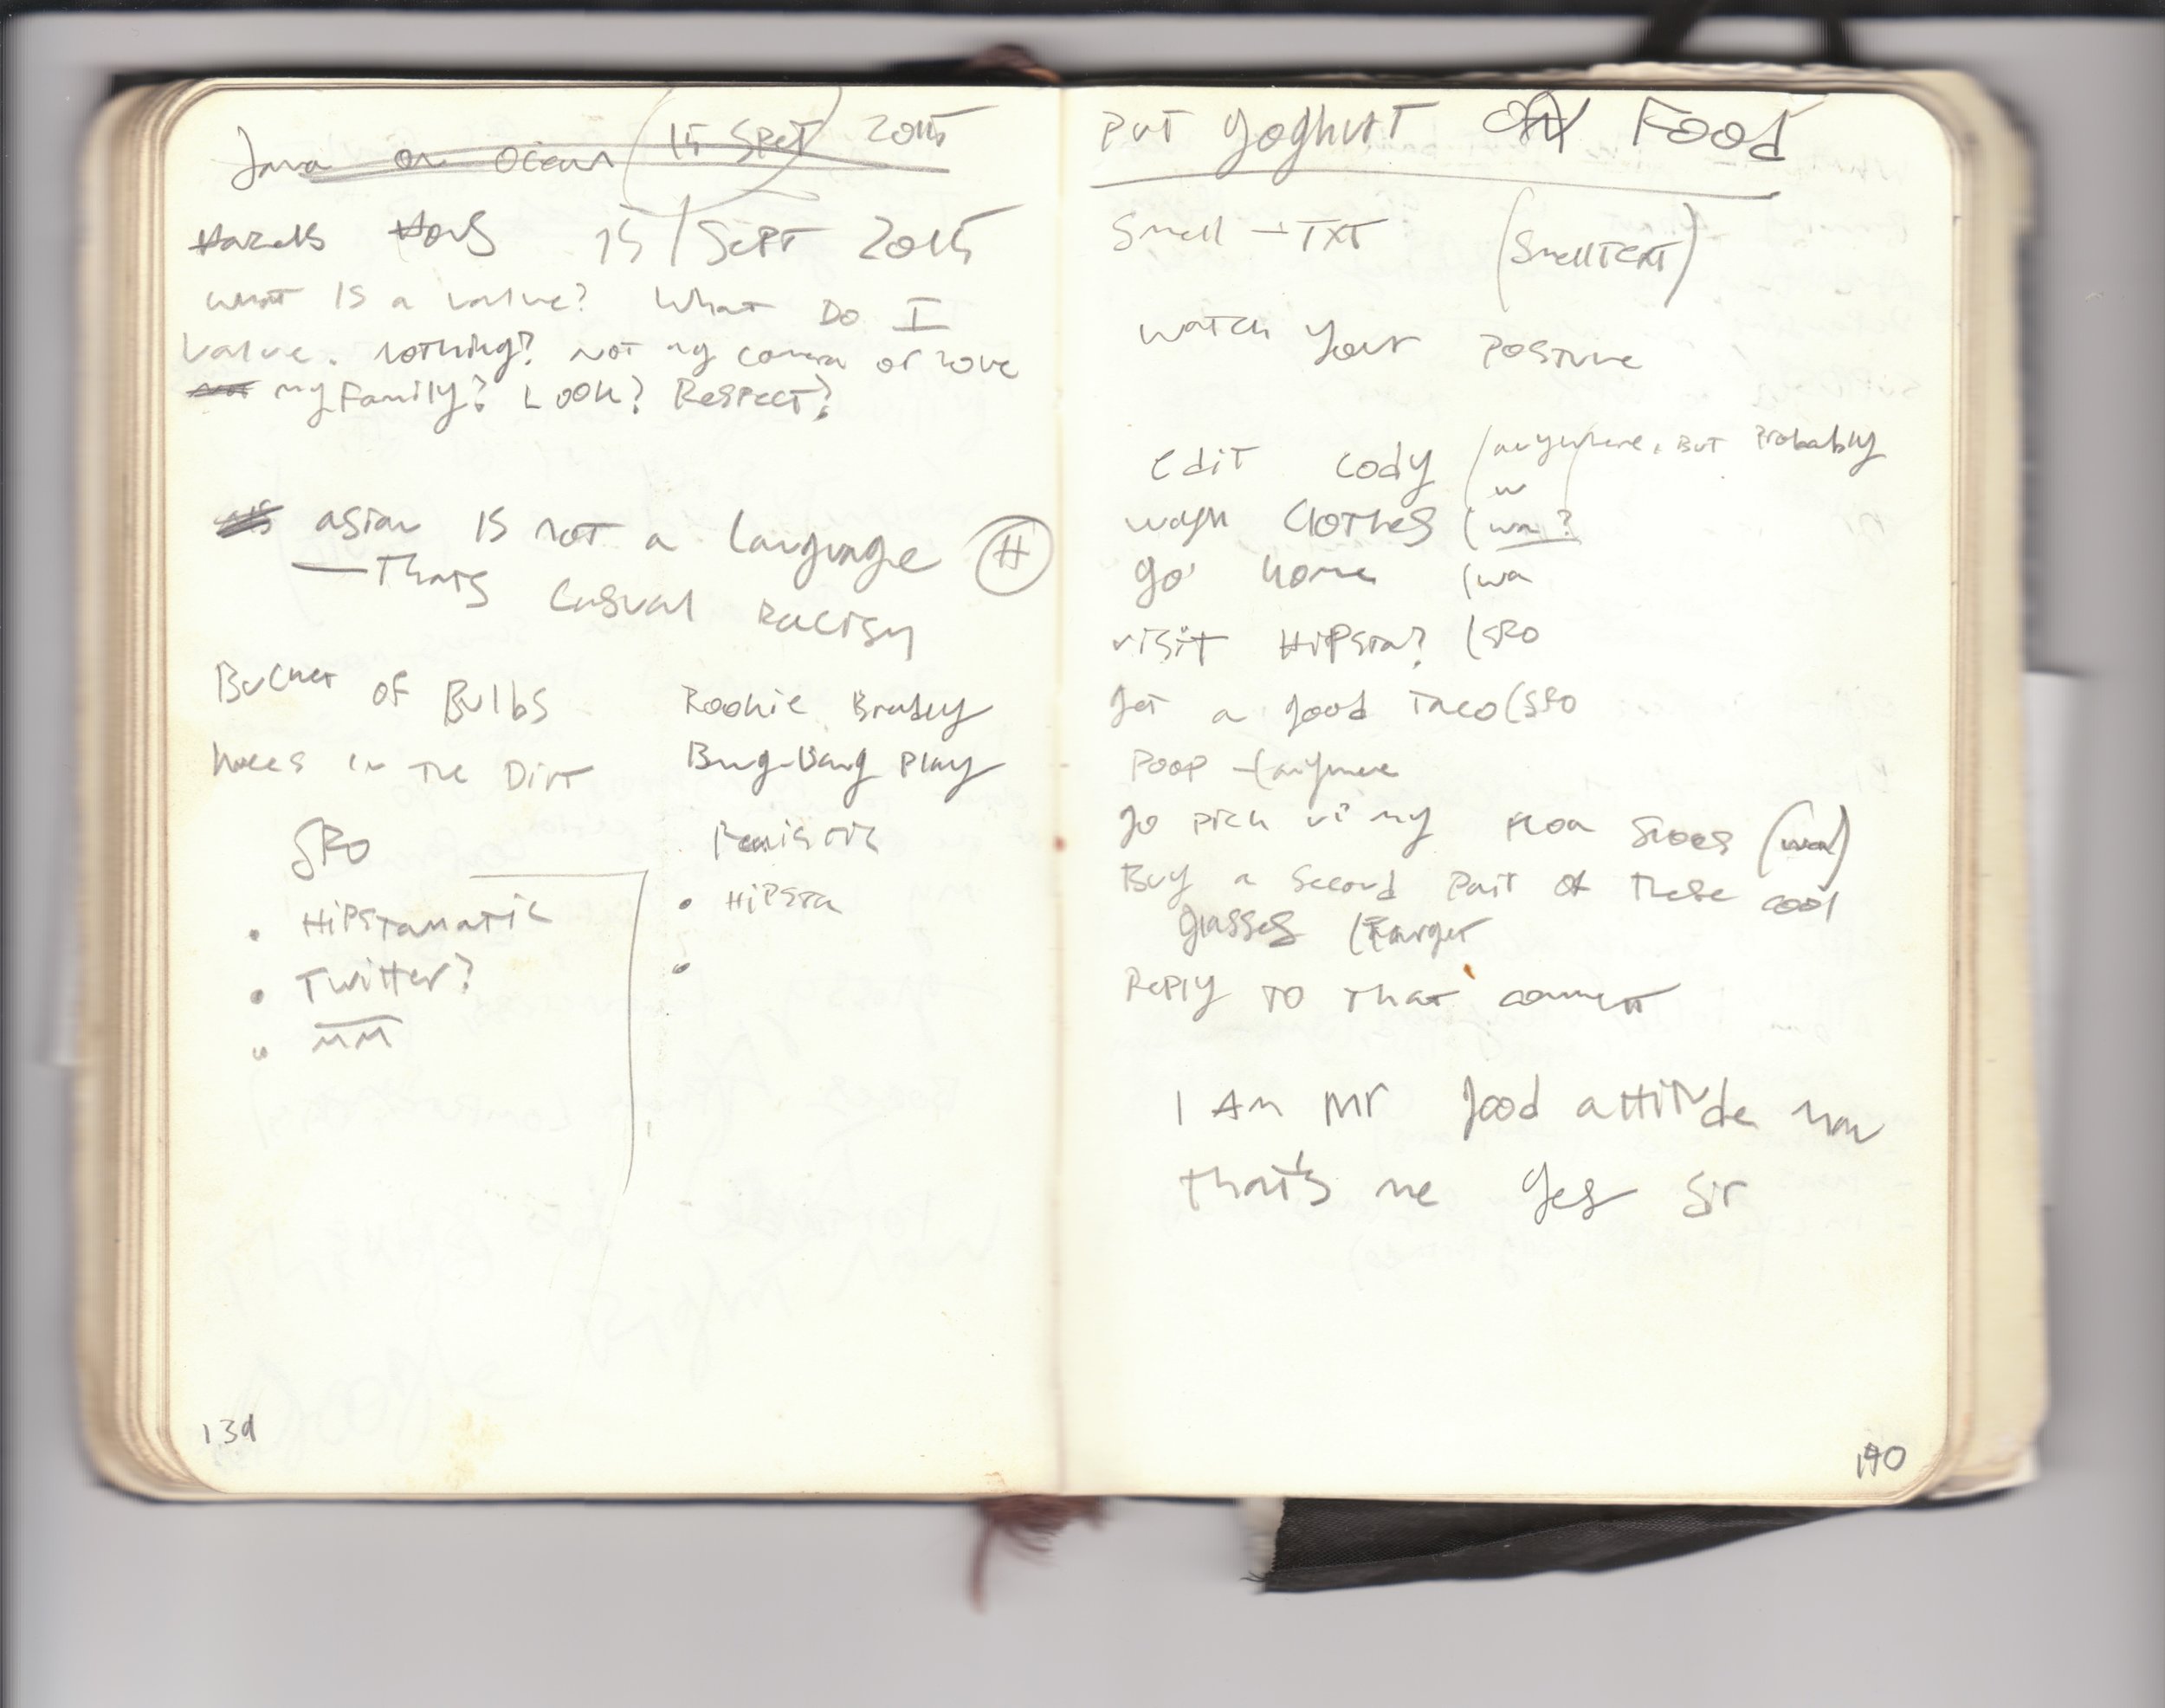 Java on Ocean (15 Spet) 2015
Hazels Haus 15/Sept 2015
what is a value? What Do I
value. nothing? not my camera or love
not my Family? Look? Respect?
asian is not a language H
—Thats Casual Racism
Bucket of Bulbs
holes in the Dirt
Rookie Bradley
Bang-Bang play
SRO
• Hipstamatic
• Twitter?
• MM
• Hipsta
•
139
Put yoghurt on Food
Smell-TXT (SmellTEXT)
watch your posture
edit Cody (anywhere, But Probably
w
wash Clothes (wa?
go home (wa
visit Hipsta? (SRO
get a good Taco (SRO
Poop -(anywhere
go pick up my shoes (wa)
Buy a second pair of these cool
glasses (Target
Reply to that comment
I Am Mr good attitude now
that's me yes sir
140